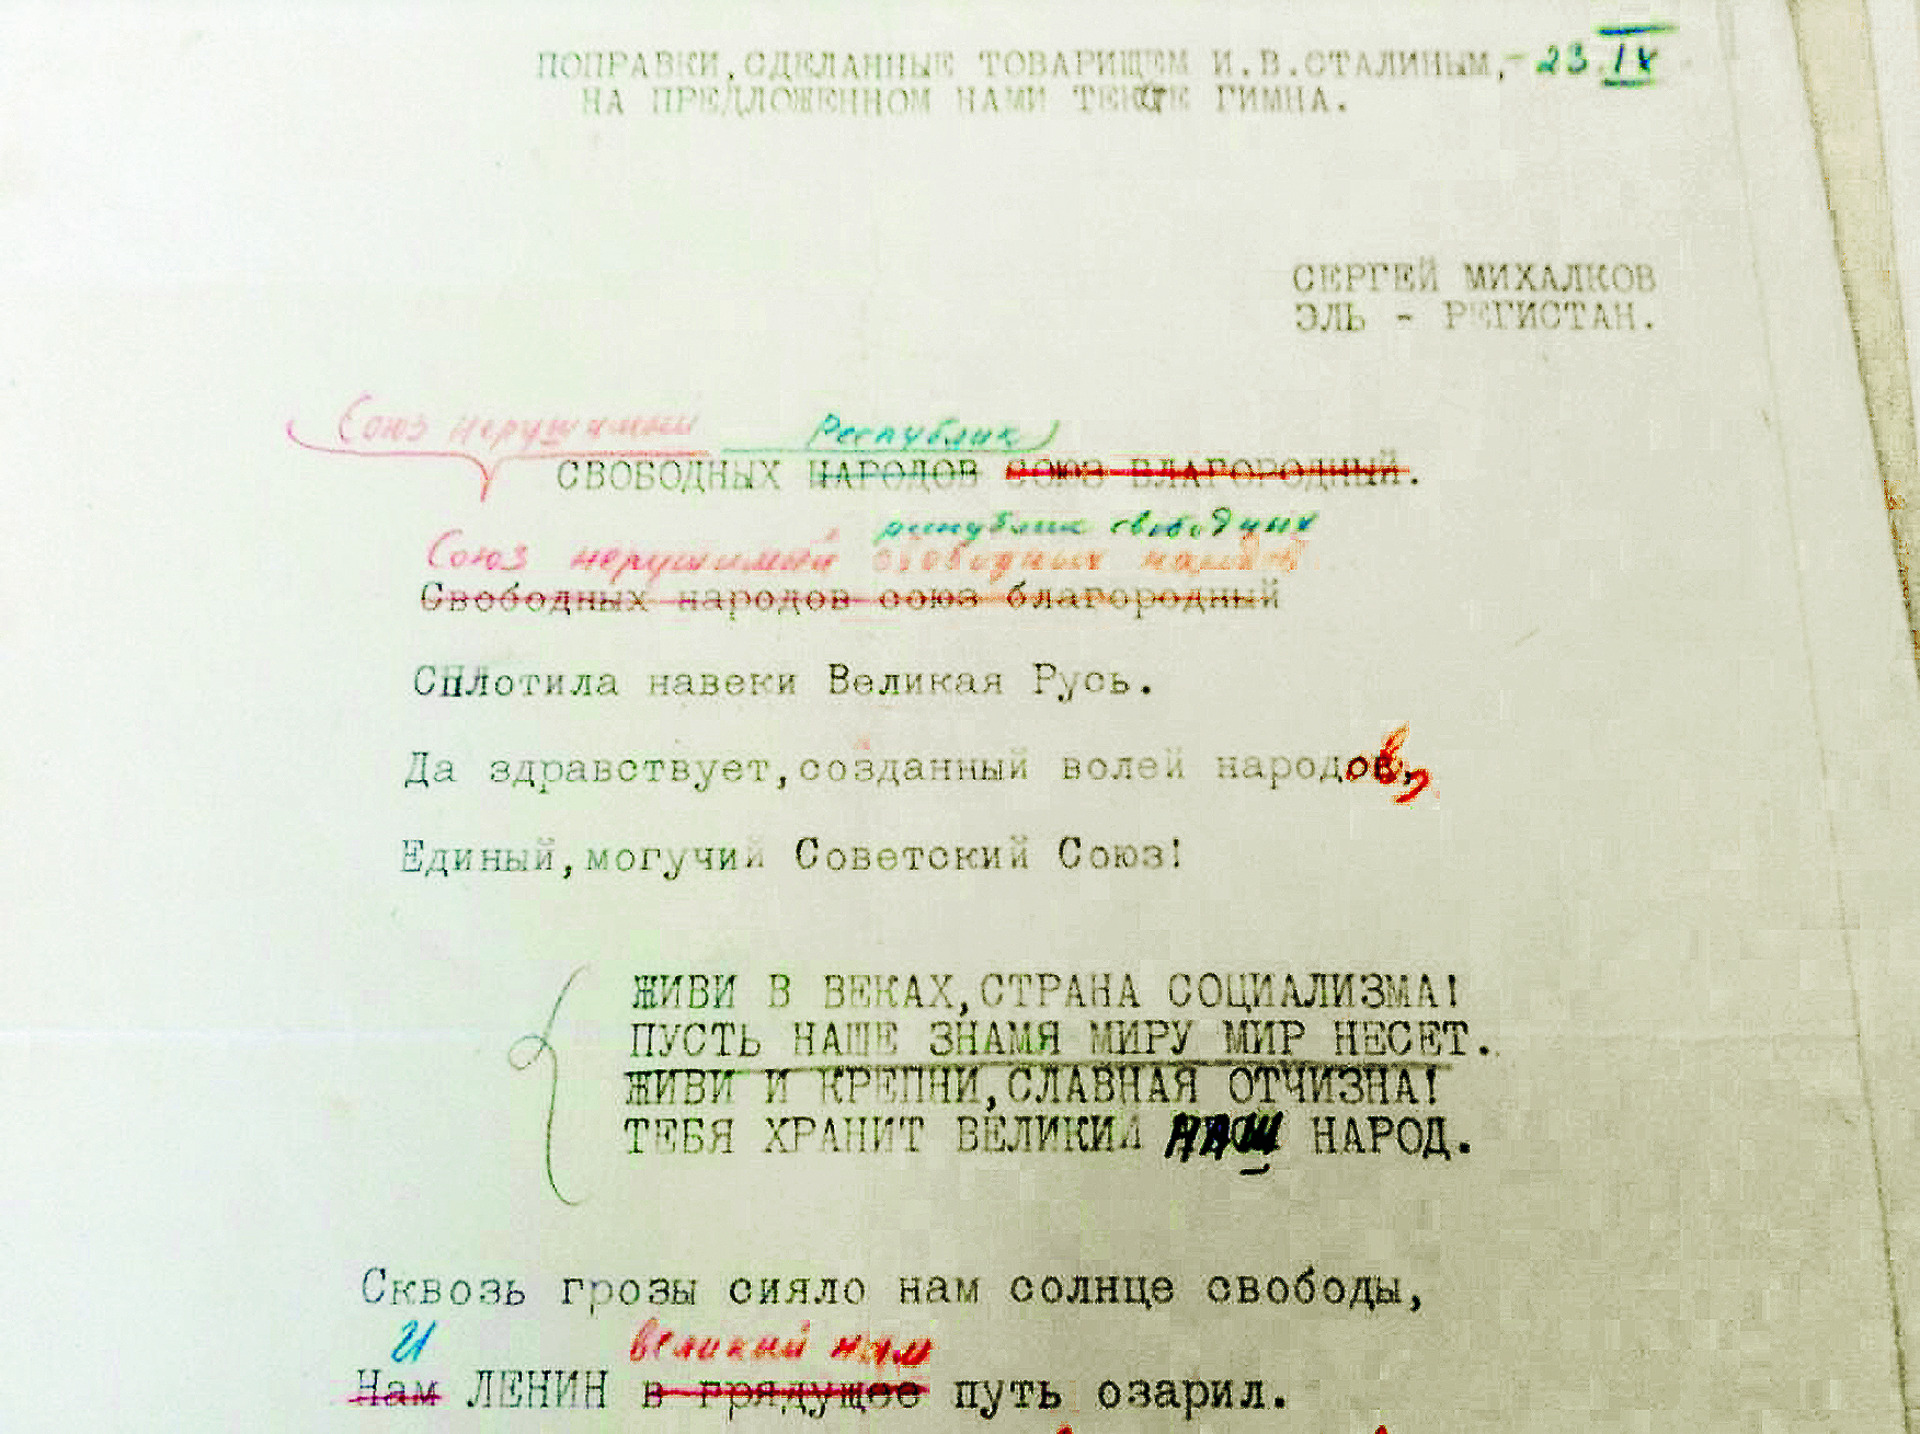 ПОПРАВКИ, СДЕЛАННЫЕ ТОВАРИЩЕМ И.В.СТАЛИНЫМ, - 23 IX
НА ПРЕДЛОЖЕННОМ НАМИ ТЕКСТЕ ГИМНА.
СЕРГЕЙ МИХАЛКОВ
ЭЛЬ - РЕГИСТАН.
Союз нерушимый Республик
СВОБОДНЫХ НАРОДОВ СОЮЗ БЛАГОРОДНЫЙ.
республик свободных
Союз нерушимый свободных народов
Свободных народов союз благородный
Сплотила навеки Великая Русь.
Да здравствует, созданный волей народов,
Единый, могучий Советский Союз!
ЖИВИ В ВЕКАХ, СТРАНА СОЦИАЛИЗМА!
ПУСТЬ НАШЕ ЗНАМЯ МИРУ МИР НЕСЕТ.
ЖИВИ И КРЕПНИ, СЛАВНАЯ ОТЧИЗНА!
ТЕБЯ ХРАНИТ ВЕЛИКИЙ НАШ НАРОД.
Сквозь грозы сияло нам солнце свободы,
И великий нам
Нам ЛЕНИН в грядущее путь озарил.